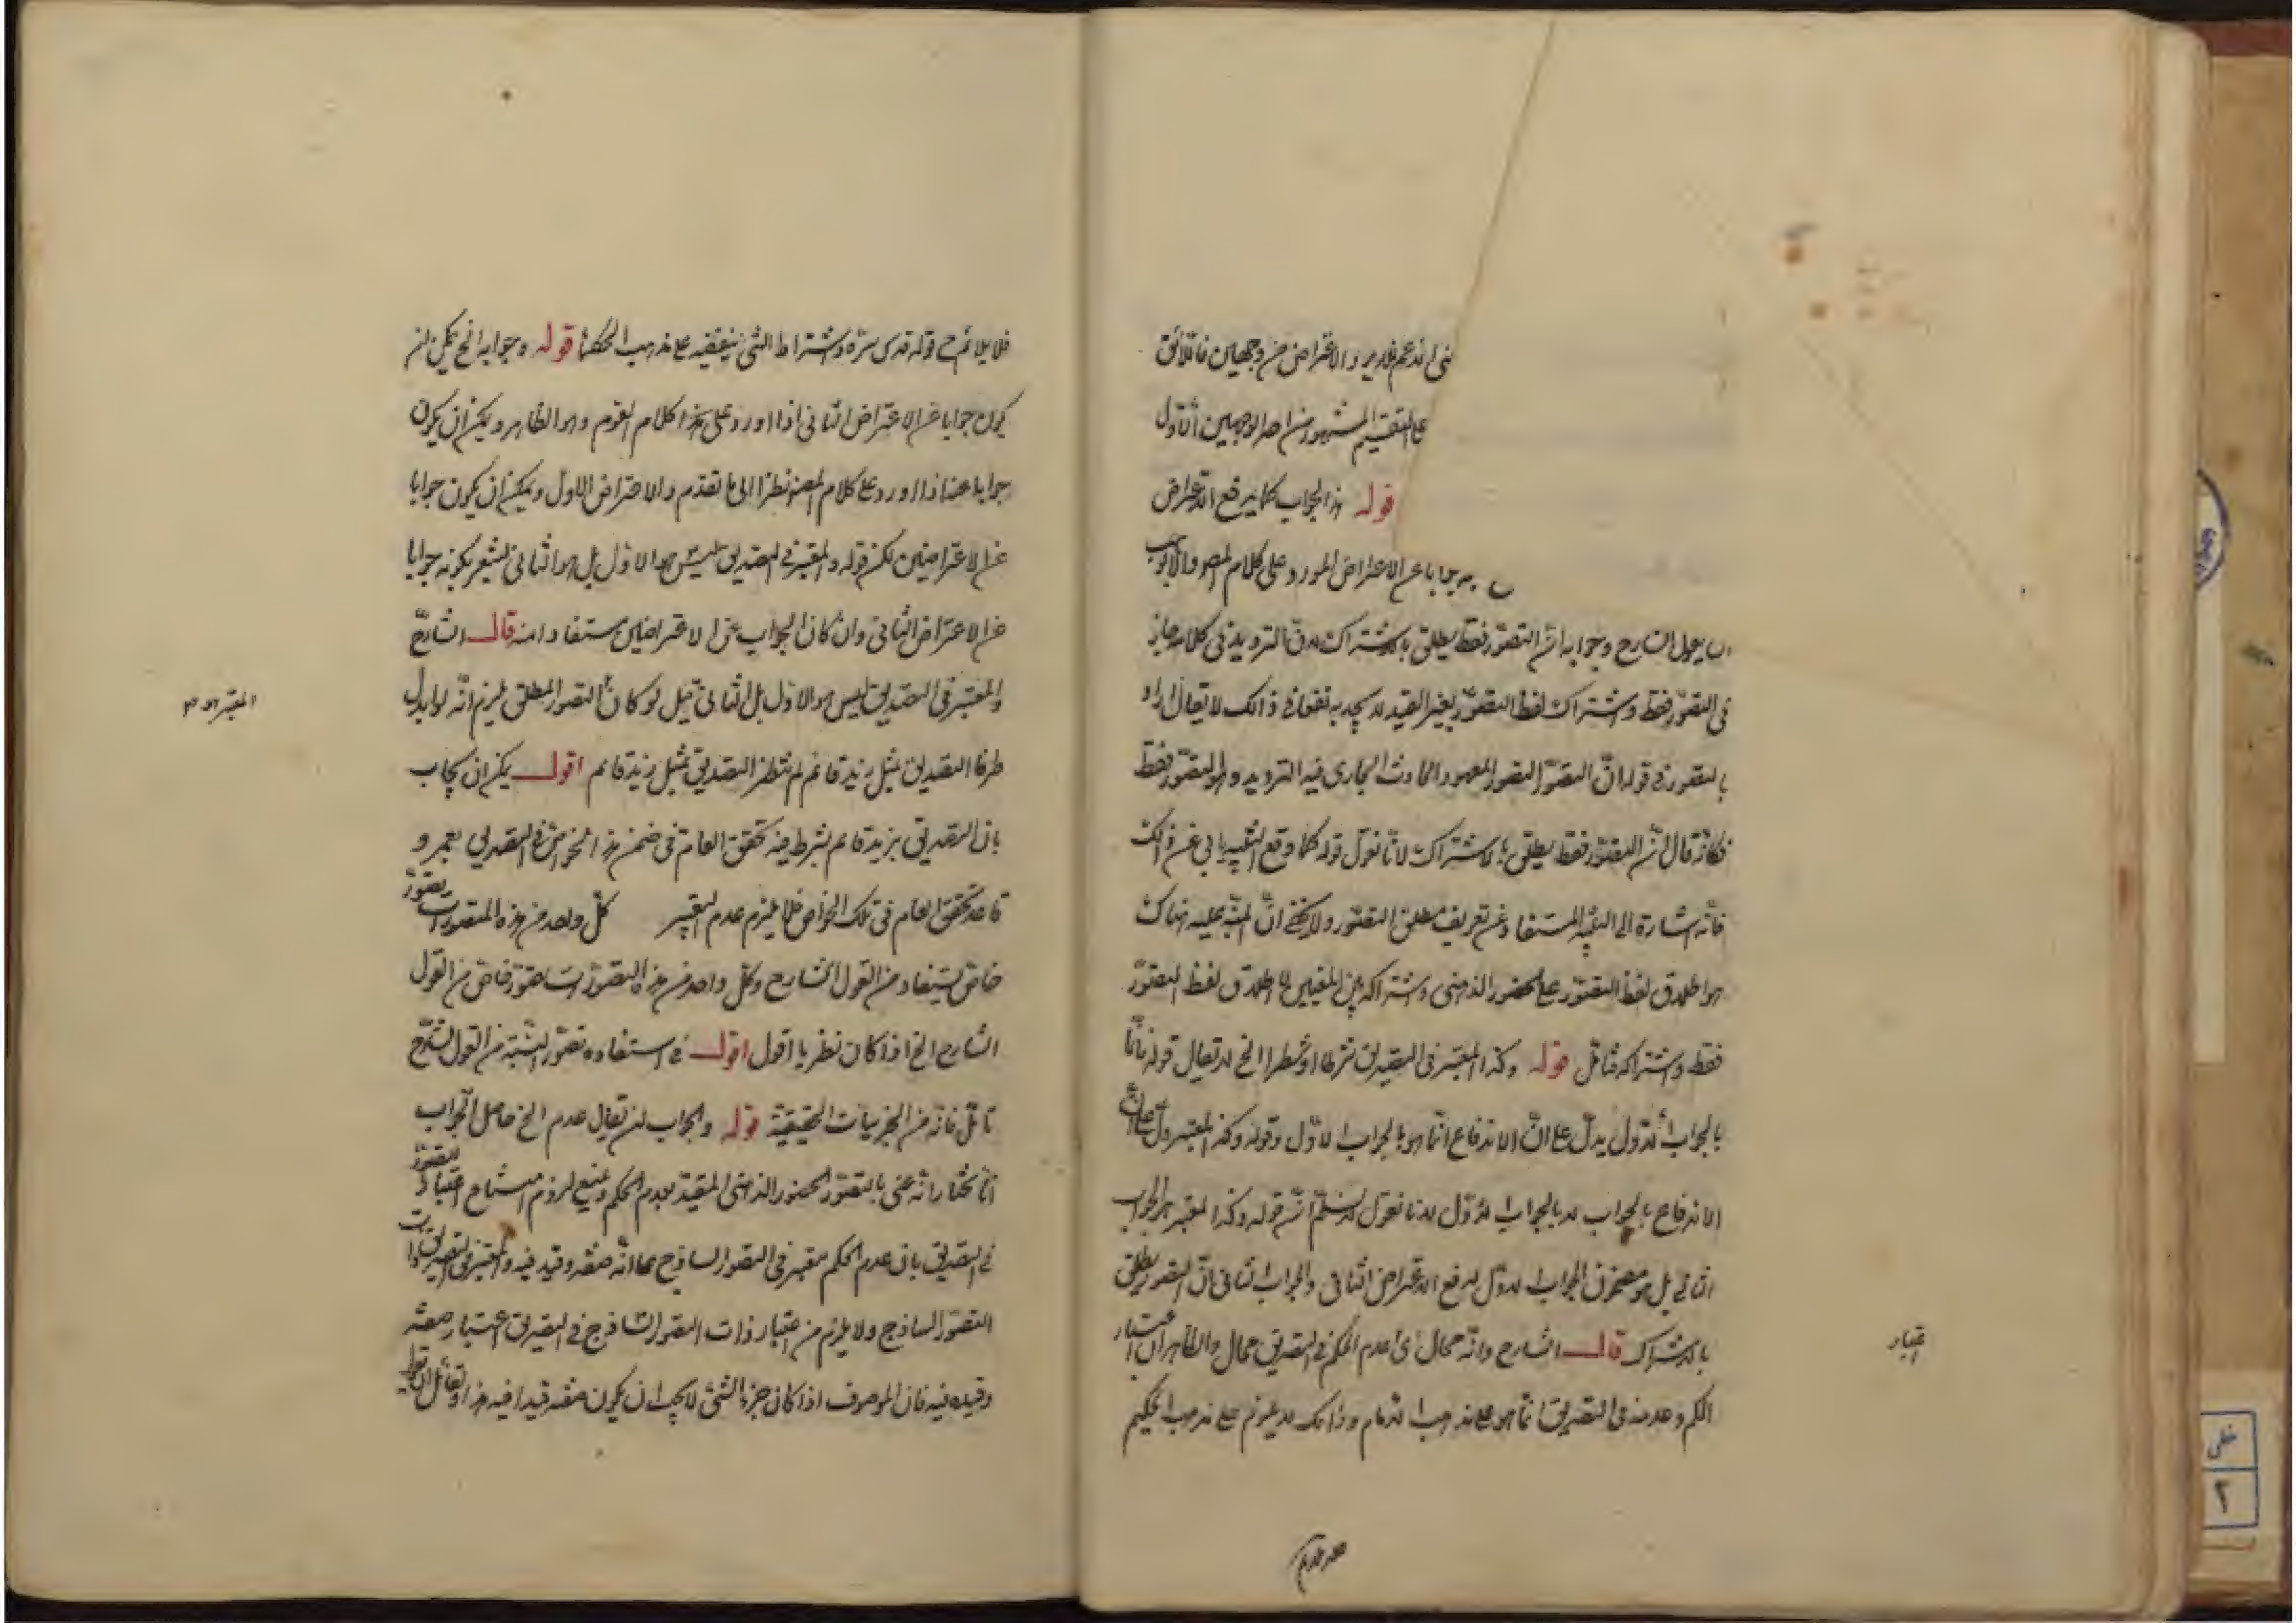 والاعتراض من وجهين فاللائق
على التقسيم المشهور من احد الوجهين الاول
قوله هذا الجواب كما يرفع الاعتراض
جوابا عن الاعتراض المورد على كلام المص والا لوجب
ان يقول الشارح وجوابه ان التصور فقط يطلق بالاشتراك لان الترديد في كلامه جاز
في التصور فقط واشتراك لفظ التصور بغير القيد لا يجديه نفعا في ذلك لا يقال اراد
بالتصور في قوله ان التصور التصور المعهود الحادث الجاري فيه الترديد وهو التصور فقط
فكانه قال ان التصور فقط يطلق بالاشتراك لانا نقول قوله كما وقع التنبيه يابى عن ذلك
فانه اشارة الى التنبيه المستفاد عن تعريف مطلق التصور ولا يخفى ان المنبه عليه هناك
هو اطلاق لفظ التصور على الحضور الذهني واشتراكه بين المعنيين لا اطلاق لفظ التصور
فقط واشتراكه فتامل قوله وكذا المعتبر في التصديق شرطا او شطرا الخ لا يقال قوله ثانيا
بالجواب الاول يدل على ان الاندفاع انما هو بالجواب الاول وقوله وكذا المعتبر دل على ان
الاندفاع بالجواب لا بالجواب الاول لانا نقول لا نسلم ان قوله وكذا المعتبر هو الجواب
الثاني بل هو مصحح الجواب الاول لدفع الاعتراض الثاني والجواب الثاني ان التصور يطلق
بالاشتراك قال الشارح وانه محال اى عدم الحكم في التصديق محال والظاهر ان اعتبار
الحكم وعدمه في التصديق انما هو على مذهب الامام وذلك لا يلزم على مذهب الحكيم
اعتبار
فلا يلائم ح قوله قدس سره واشتراط الشئ بنقيضه على مذهب الحكماء قوله وجوابه الخ يمكن ان
يكون جوابا عن الاعتراض الثاني اذا اورد على هذا كلام القوم وهو الظاهر ويمكن ان يكون
جوابا عنه اذا اورد على كلام المص نظرا الى ما تقدم والاعتراض الاول ويمكن ان يكون جوابا
عن الاعتراضين لكن قوله والمعتبر في التصديق ليس هو الاول بل هو الثاني يشعر بكونه جوابا
عن الاعتراض الثاني وان كان الجواب عن الاعتراضين مستفادا منه قال الشارح
والمعتبر في التصديق ليس هو الاول بل الثاني قيل لو كان التصور المطلق يلزم انه لو ابدل
طرفا التصديق بمثل زيد قائم لم ينتظر التصديق بمثل زيد قائم اقول يمكن ان يجاب
بان التصديق بزيد قائم يشرط فيه تحقق العام في ضمن هذا الخواص والتصديق بعمرو
قاعد تحقق العام في تلك الخواص فلا يلزم عدم التغير كل واحد من هذه التصورات تصور
خاص يستفاد من القول الشارح وكل واحد من هذه التصورات تصور خاص من القول
الشارح الخ اذا كان نظريا اقول اقول في استفادة تصور النسبة من القول الشارح
تامل فانه من الجزئيات الحقيقية قوله والجواب ان يقال عدم الخ حاصل الجواب
انا نختار انه عنى بالتصور الحضور الذهني المقيد بعدم الحكم ونمنع لزوم امتناع اعتبار التصور
في التصديق بان عدم الحكم معتبر في التصور الساذج على انه صفة وقيد فيه والمعتبر في التصديق ذات
التصور الساذج ولا يلزم من اعتبار ذات التصور الساذج في التصديق اعتبار صفته
وقيده فيه فان الموصوف اذا كان جزء الشئ لا يجب ان يكون صفته قيدا فيه هذا ولقائل ان يقول
المعتبر هو